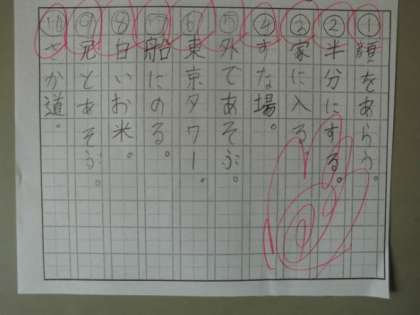 ①顔をあらう。
②半分にする。
③家に入る
④すな場。
⑤外であそぶ。
⑥東京タワー。
⑦船にのる。
⑧白いお米。
⑨兄とあそぶ。
⑩さか道。